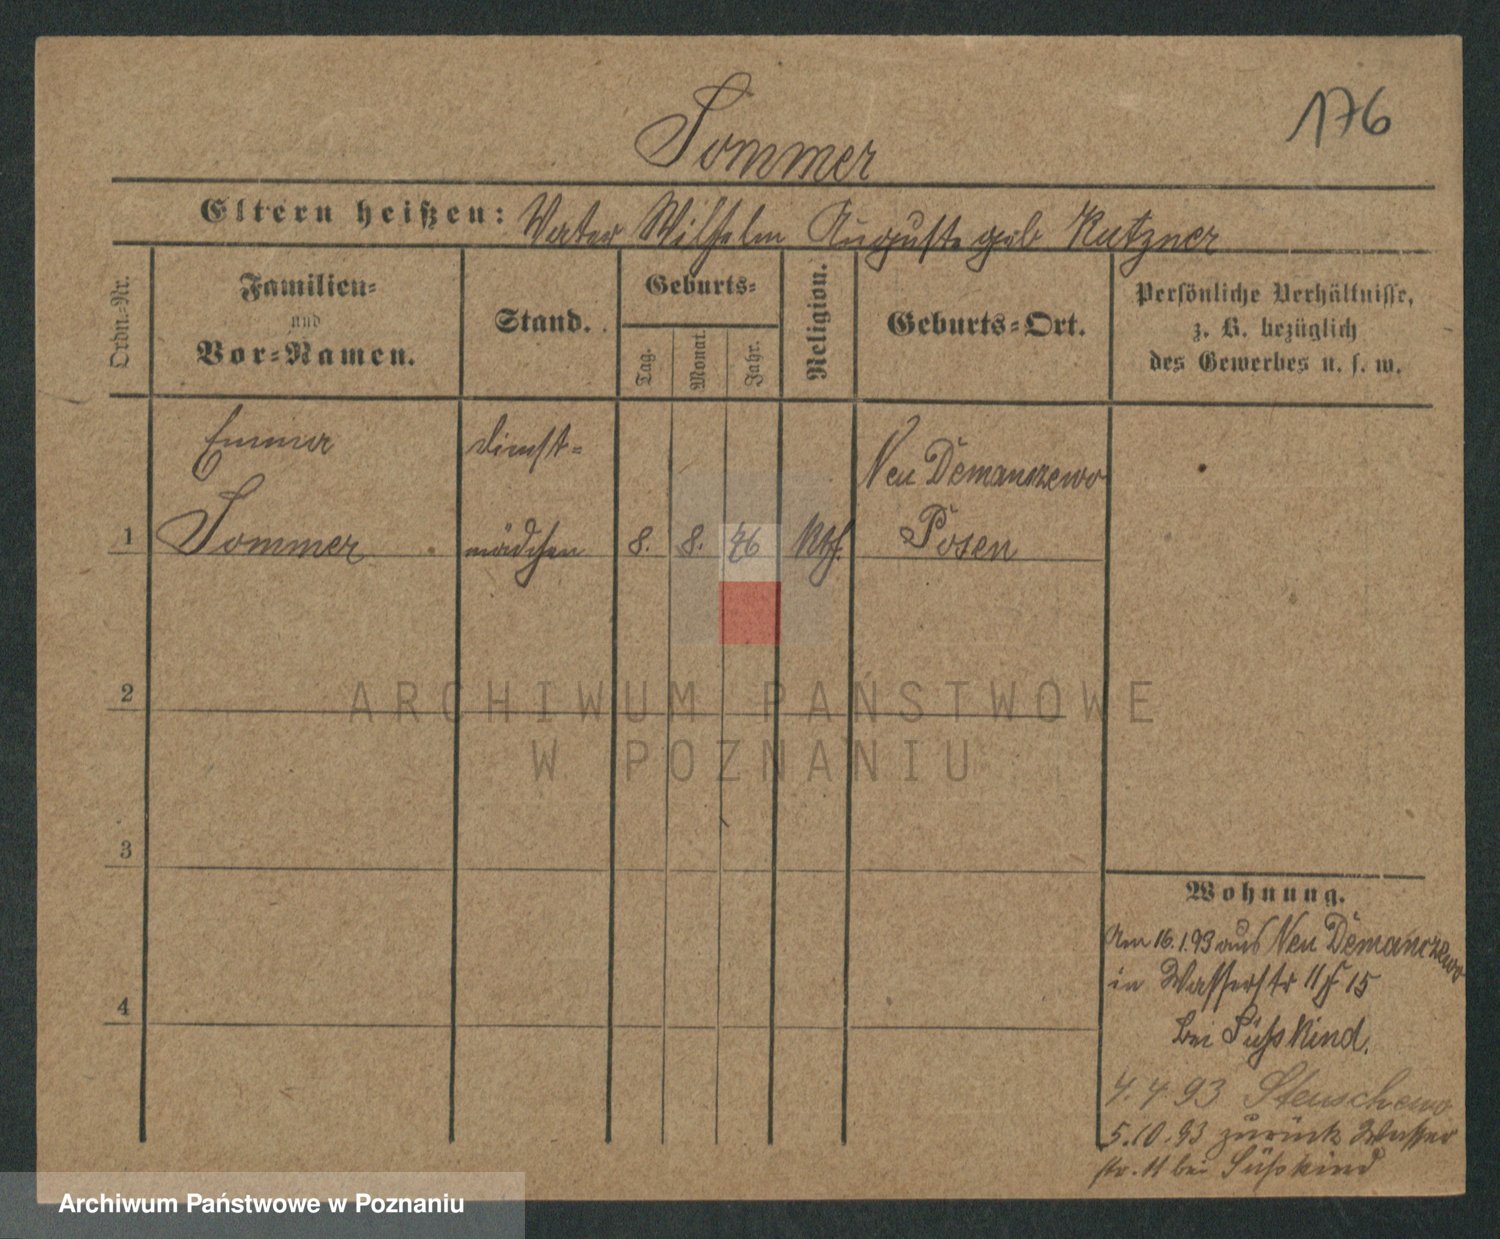 176
Sommer
Eltern heißen: Vater Wilhelm Auguste geb Kutzner
Ordn.-Nr.
Familien-
und
Vor-Namen.
Stand.
Geburts-
Tag.
Monat.
Jahr.
Religion.
Geburts-Ort.
Persönliche Verhältnisse,
z. B. bezüglich
des Gewerbes u. s. w.
Emma Dienst- Neu Demanczewo
1 Sommer mädchen 8. 8. 76 Kth. Posen
2
3
4
Wohnung.
Am 16.1.93 aus Neu Demanczewo
in Wasserstr 11 15
bei Süßkind.
4.4.93 Stenschewo
5.10.93 zurück Wasser
str. 11 bei Süßkind
ARCHIWUM PAŃSTWOWE
W POZNANIU
Archiwum Państwowe w Poznaniu